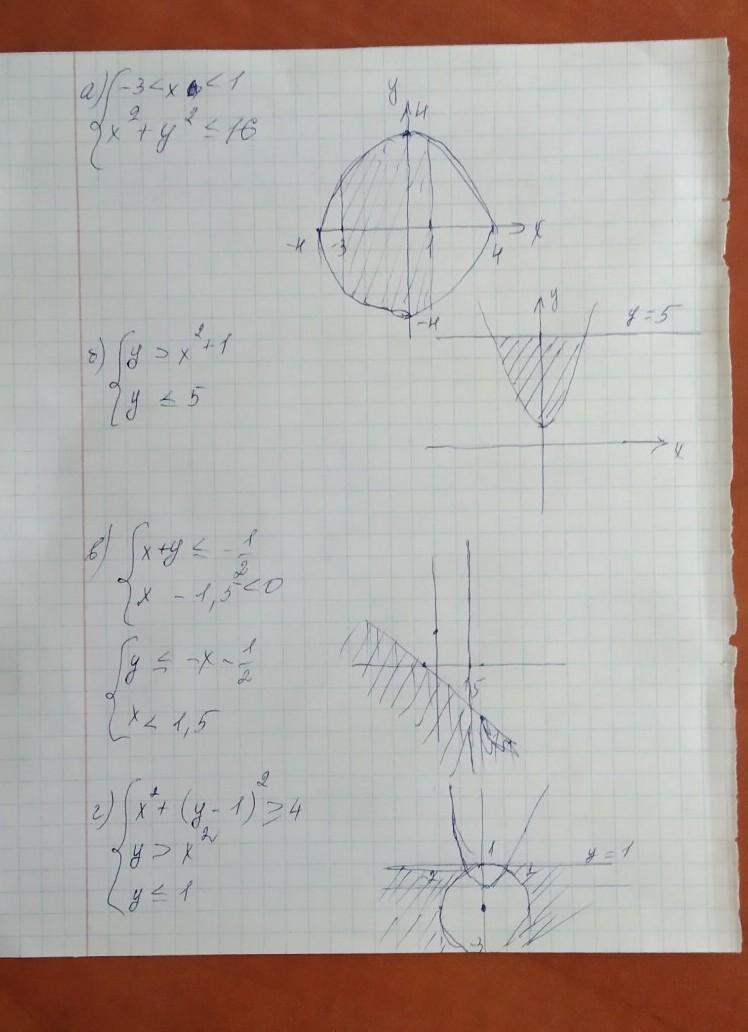 а) { -3 < x < 1
x² + y² ≤ 16
y
4
-4
-3
1
4
x
-4
б) { y > x² + 1
y ≤ 5
y
y = 5
x
в) { x + y ≤ -1/2
x - 1,5 < 0
{ y ≤ -x - 1/2
x < 1,5
г) { x² + (y - 1)² ≥ 4
y > x²
y ≤ 1
1
y = 1
-3